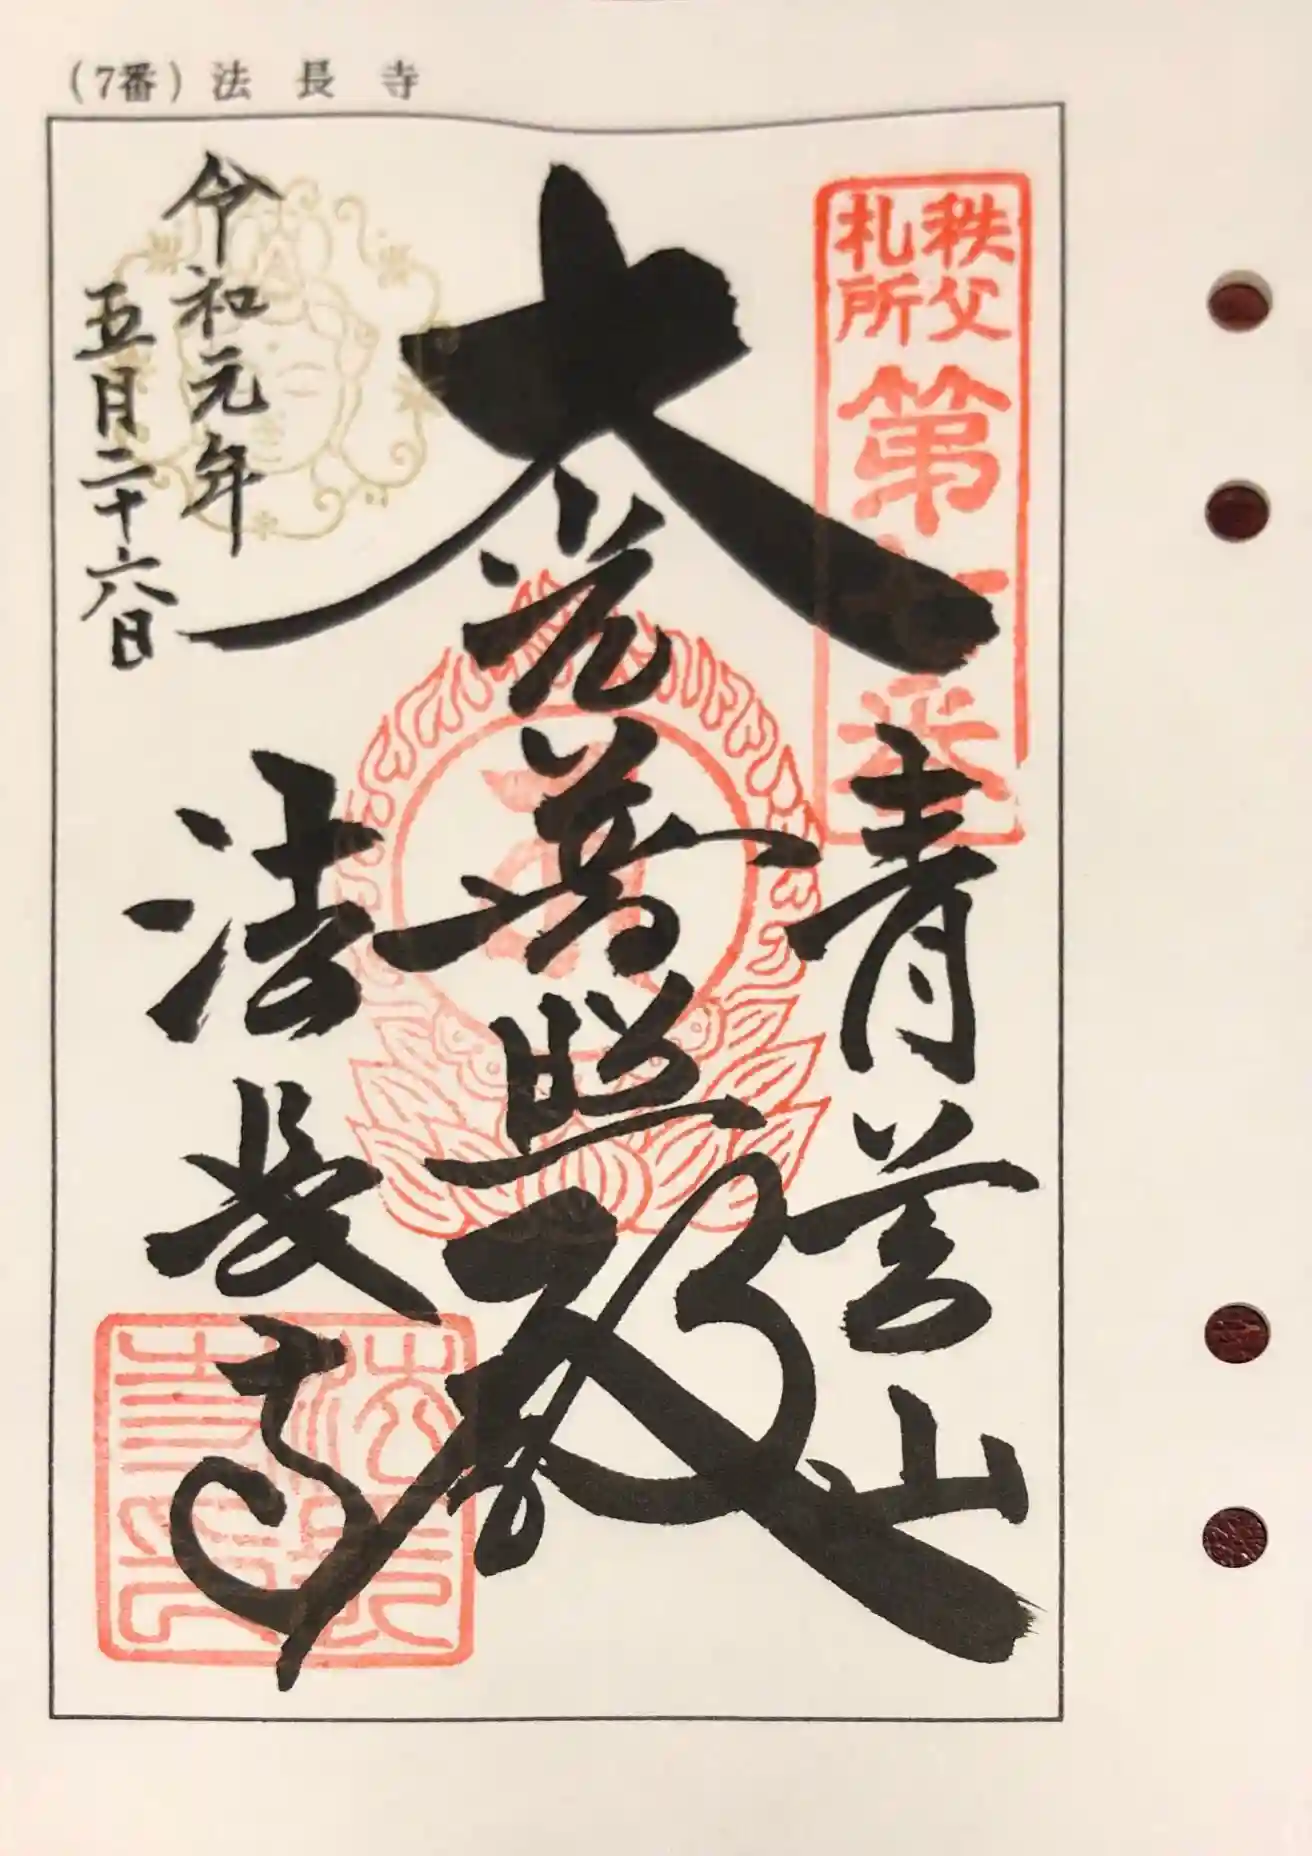 (7番) 法長寺
秩父
札所
第七番
青苔山
大光普照殿
法長寺
令和元年
五月二十六日
法長寺